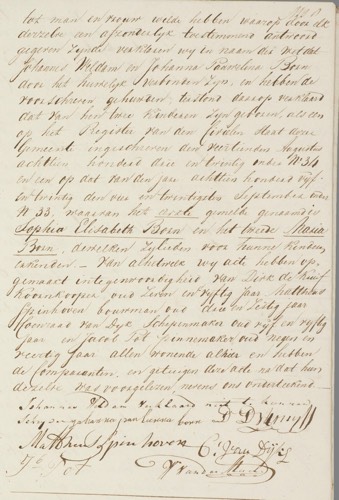 tot man en vrouw wilde hebben waarop door elk
derzelve een afzonderlijk toestemmend antwoord
gegeven zynde verklaren wy in naam der wet dat
Johannes Weldam en Johanna Born
door het Huwelyk verbonden zyn, en hebben de
voorschreven gehuwden, terstond daarop verklaard
dat van hen twee kinderen zyn geboren, als een
op het Register van den civielen Staat dezer
Gemeente ingeschreven den Augustus
achttien honderd drie en twintig onder N 34
en een op dat van den jare achttien honderd vyf
en twintig den vier en twintigsten September onder
N 33, waarvan het eerste gemelde genaamd is
Sophia Elisabeth Born en het tweede Maria
Born, dewelke zylieden voor hunne kinderen
erkenden — Van alhetwelk wy acte hebben op-
gemaakt in tegenwoordigheid van Dirk de Kruif
Koornkooper oud zeven en vyftig jaar, Mattheus
Spinhoven bouwman oud drie en zestig jaar
Coenraad van Dyk Schipemaker oud vyf en vyftig
jaar en Jacob Tot Spinnemaker oud negen en
veertig jaar, allen wonende alhier en hebben
de comparanten en getuigen deze acte na dat hun
dezelve was voorgelezen, nevens ons onderteekend —
Johannes
Born
D D Kruyff
Matheus Spinhoven
C. Van Dijk